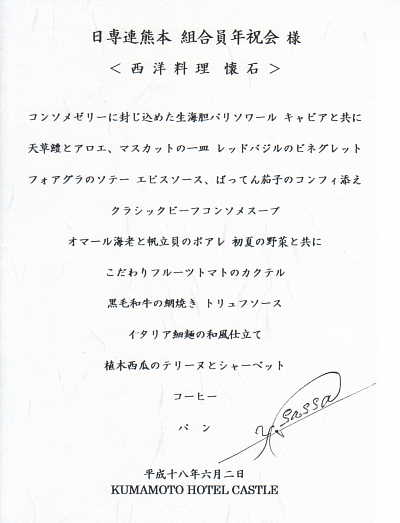 日専連熊本 組合員年祝会 様
＜ 西洋料理 懐石 ＞
コンソメゼリーに封じ込めた生海胆パリソワール キャビアと共に
天草鱧とアロエ、マスカットの一皿 レッドバジルのビネグレット
フォアグラのソテー エピスソース、ばってん茄子のコンフィ添え
クラシックビーフコンソメスープ
オマール海老と帆立貝のポアレ 初夏の野菜と共に
こだわりフルーツトマトのカクテル
黒毛和牛の網焼き トリュフソース
イタリア細麺の和風仕立て
植木西瓜のテリーヌとシャーベット
コーヒー
パン
平成十八年六月二日
KUMAMOTO HOTEL CASTLE